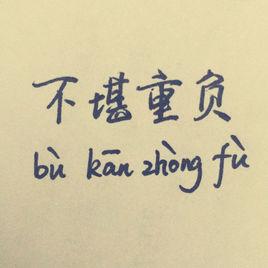 不堪重负
bù kān zhòng fù